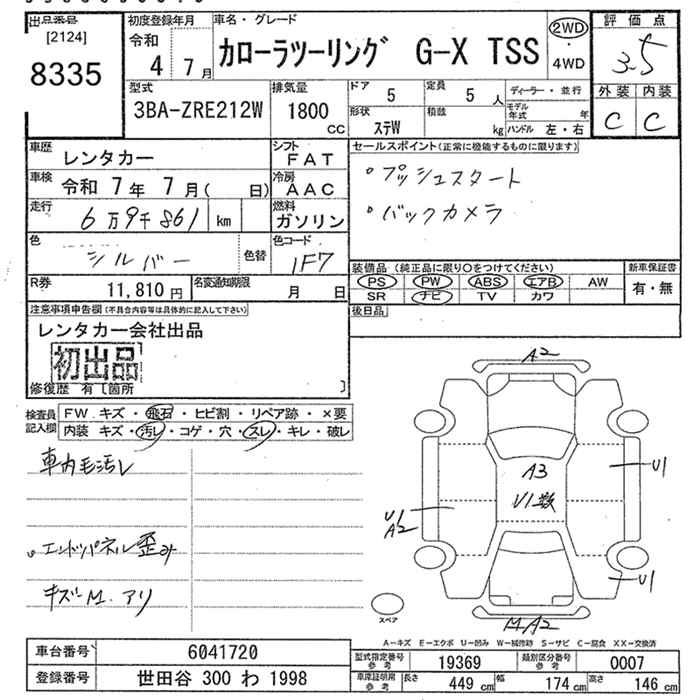 出品番号
[2124]
8335
初度登録年月
令和
4 7月
車名・グレード
カローラツーリング G-X TSS
2WD
・
4WD
評価点
3.5
外装 内装
C C
型式
3BA-ZRE212W
排気量
1800
CC
ドア
5
定員
5 人
形状
ステW
積載
kg
ディーラー・並行
モデル年式 年
ハンドル 左・右
車歴
レンタカー
シフト
FAT
車検
令和 7年 7月( 日)
冷房
AAC
走行
6万9千861 km
燃料
ガソリン
色
シルバー
色替
色コード
1F7
R券
11,810円
名変通知期限
月 日
セールスポイント(正常に機能するものに限ります)
・プッシュスタート
・バックカメラ
装備品(純正品に限り○をつけてください)
PS PW ABS エアB AW
SR ナビ TV カワ
新車保証書
有・無
後日品
注意事項申告欄(不具合内容等は具体的に記入して下さい)
レンタカー会社出品
初出品
修復歴 有〔箇所 〕
検査員記入欄
FW キズ・飛石・ヒビ割・リペア跡・×要
内装 キズ・汚レ・コゲ・穴・スレ・キレ・破レ
車内毛汚レ
エンドパネル歪み
キズM.アリ
A2
A3
U1数
U1
U1
A2
U1
M.A2
スペア
A-キズ E-エクボ U-凹み W-補修跡 S-サビ C-腐食 XX-交換済
車台番号 6041720
登録番号 世田谷 300 わ 1998
型式指定番号 参考 19369
類別区分番号 参考 0007
車庫証明用 参考 長さ 449cm 幅 174cm 高さ 146cm